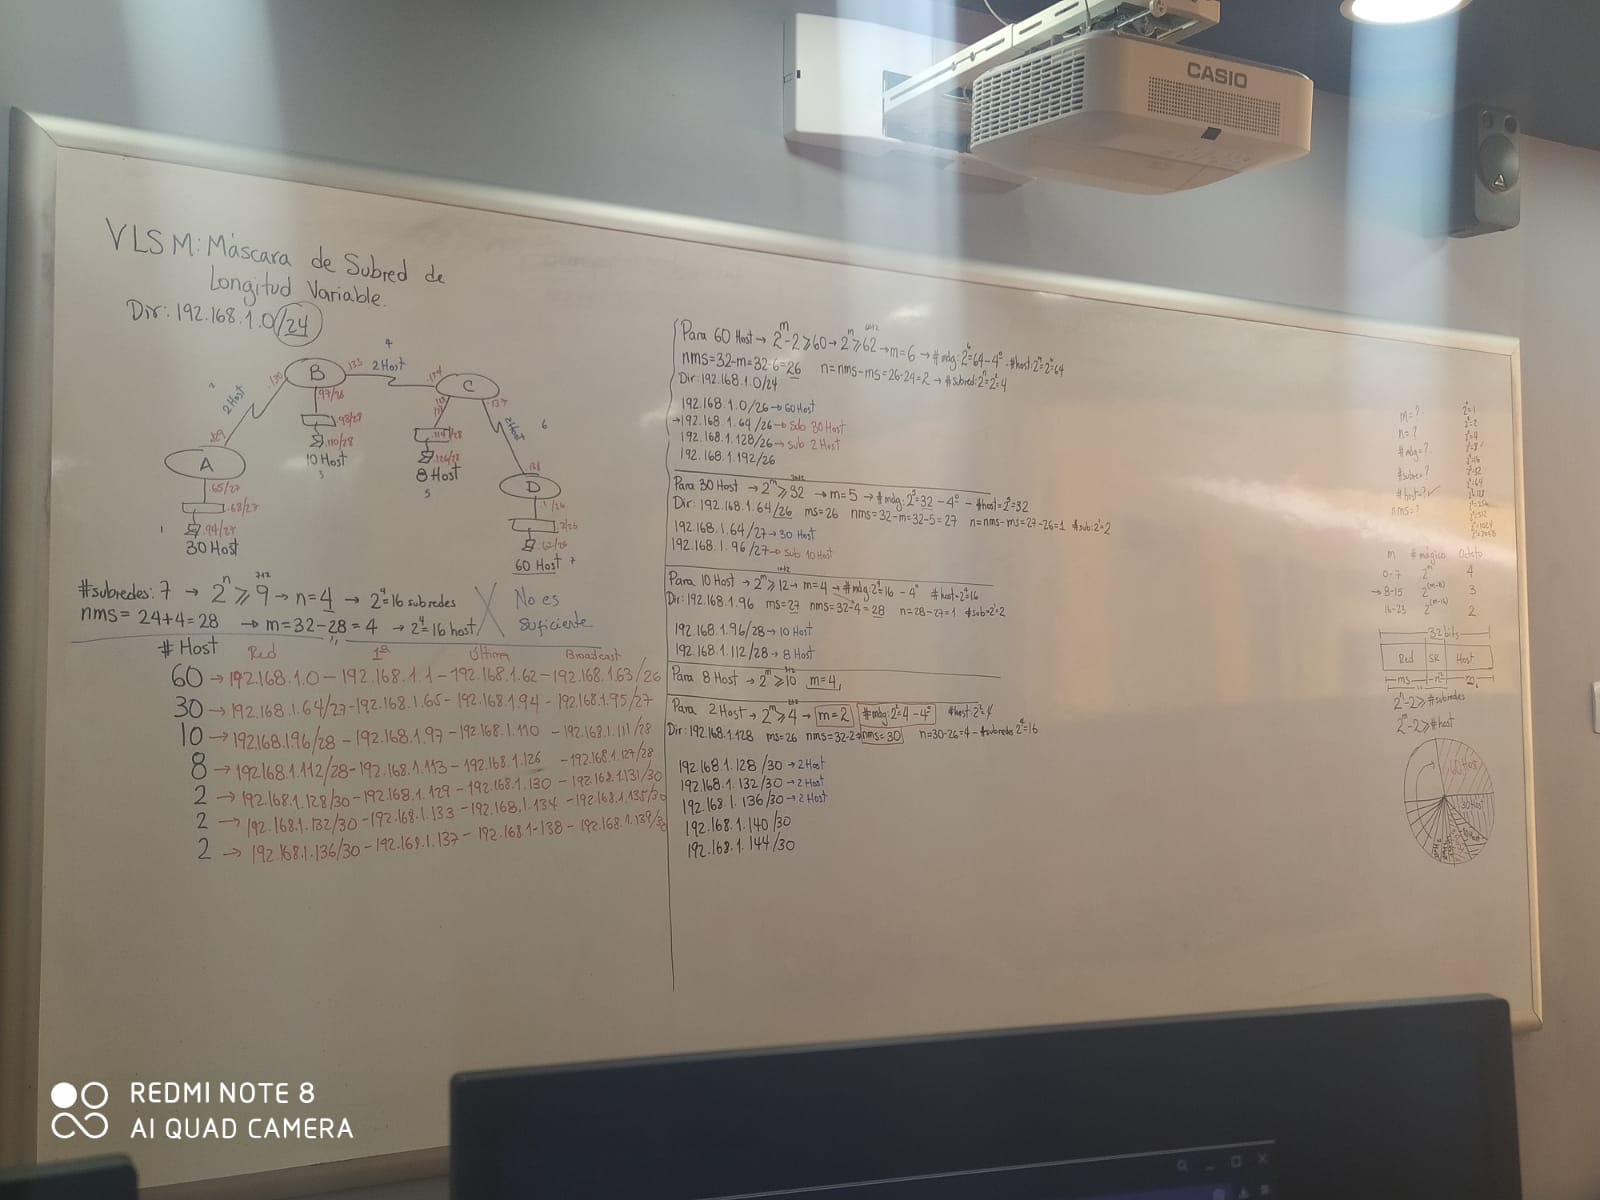 CASIO
VLSM: Máscara de Subred de
Longitud Variable.
Dir: 192.168.1.0/24
B
2 Host
C
2 Host
97/28
98/28
.110/28
10 Host
3
A
.65/27
.94/27
30 Host
1
8 Host
5
2 Host
6
D
60 Host
7
#subredes: 7 → 2ⁿ ≥ 9 → n=4 → 2⁴=16 subredes
nms = 24+4=28 → m=32-28=4 → 2⁴=16 host
No es
suficiente
# Host Red 1ª Última Broadcast
60 → 192.168.1.0 - 192.168.1.1 - 192.168.1.62 - 192.168.1.63/26
30 → 192.168.1.64/27 - 192.168.1.65 - 192.168.1.94 - 192.168.1.95/27
10 → 192.168.1.96/28 - 192.168.1.97 - 192.168.1.110 - 192.168.1.111/28
8 → 192.168.1.112/28 - 192.168.1.113 - 192.168.1.126 - 192.168.1.127/28
2 → 192.168.1.128/30 - 192.168.1.129 - 192.168.1.130 - 192.168.1.131/30
2 → 192.168.1.132/30 - 192.168.1.133 - 192.168.1.134 - 192.168.1.135/30
2 → 192.168.1.136/30 - 192.168.1.137 - 192.168.1.138 - 192.168.1.139/30
Para 60 Host → 2ᵐ-2 ≥ 60 → 2ᵐ ≥ 62 → m=6 → #mdg: 2⁶=64 - 4° - #host: 2ᵐ=2⁶=64
nms=32-m=32-6=26 n=nms-ms=26-24=2 → #subred: 2ⁿ=2²=4
Dir: 192.168.1.0/24
192.168.1.0/26 → 60 Host
→ 192.168.1.64/26 → sub 30 Host
192.168.1.128/26 → sub 2 Host
192.168.1.192/26
Para 30 Host → 2ᵐ ≥ 32 → m=5 → #mdg: 2⁵=32 - 4° - #host=2⁵=32
Dir: 192.168.1.64/26 ms=26 nms=32-m=32-5=27 n=nms-ms=27-26=1 #sub: 2¹=2
192.168.1.64/27 → 30 Host
192.168.1.96/27 → sub 10 Host
Para 10 Host → 2ᵐ ≥ 12 → m=4 → #mdg: 2⁴=16 - 4° #host=2⁴=16
Dir: 192.168.1.96 ms=27 nms=32-4=28 n=28-27=1 #sub=2¹=2
192.168.1.96/28 → 10 Host
192.168.1.112/28 → 8 Host
Para 8 Host → 2ᵐ ≥ 10 m=4
Para 2 Host → 2ᵐ ≥ 4 → m=2 #mdg: 2²=4 - 4° #host: 2²=4
Dir: 192.168.1.128 ms=26 nms=32-2 nms=30 n=30-26=4 - #subredes 2⁴=16
192.168.1.128/30 → 2 Host
192.168.1.132/30 → 2 Host
192.168.1.136/30 → 2 Host
192.168.1.140/30
192.168.1.144/30
m=?
n=?
#mdg=?
#subred=?
#host=?
nms=?
m # mágico Octeto
0-7 2ᵐ 4
→ 8-15 2⁽ᵐ⁻⁸⁾ 3
16-23 2⁽ᵐ⁻¹⁶⁾ 2
32 bits
Red SR Host
2ⁿ-2 ≥ #subredes
2ᵐ-2 ≥ #host
60 Host
30 Host
REDMI NOTE 8
AI QUAD CAMERA